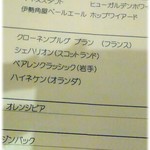 ヒューガルデンホワ
伊勢角屋ペールエール ホップワイアード
クローネンブルグ ブラン (フランス)
シェハリオン(スコットランド)
ベアレンクラッシック(岩手)
ハイネケン(オランダ)
オレンジビア
ジンバック